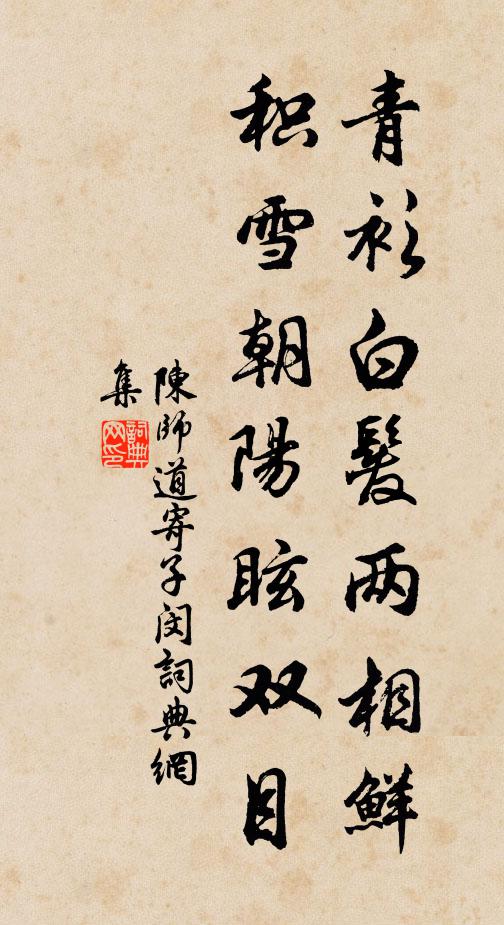 青衫白髮两相鮮
积雪朝陽眩双目
陳師道寄子闵詞典網
集
詞典网印